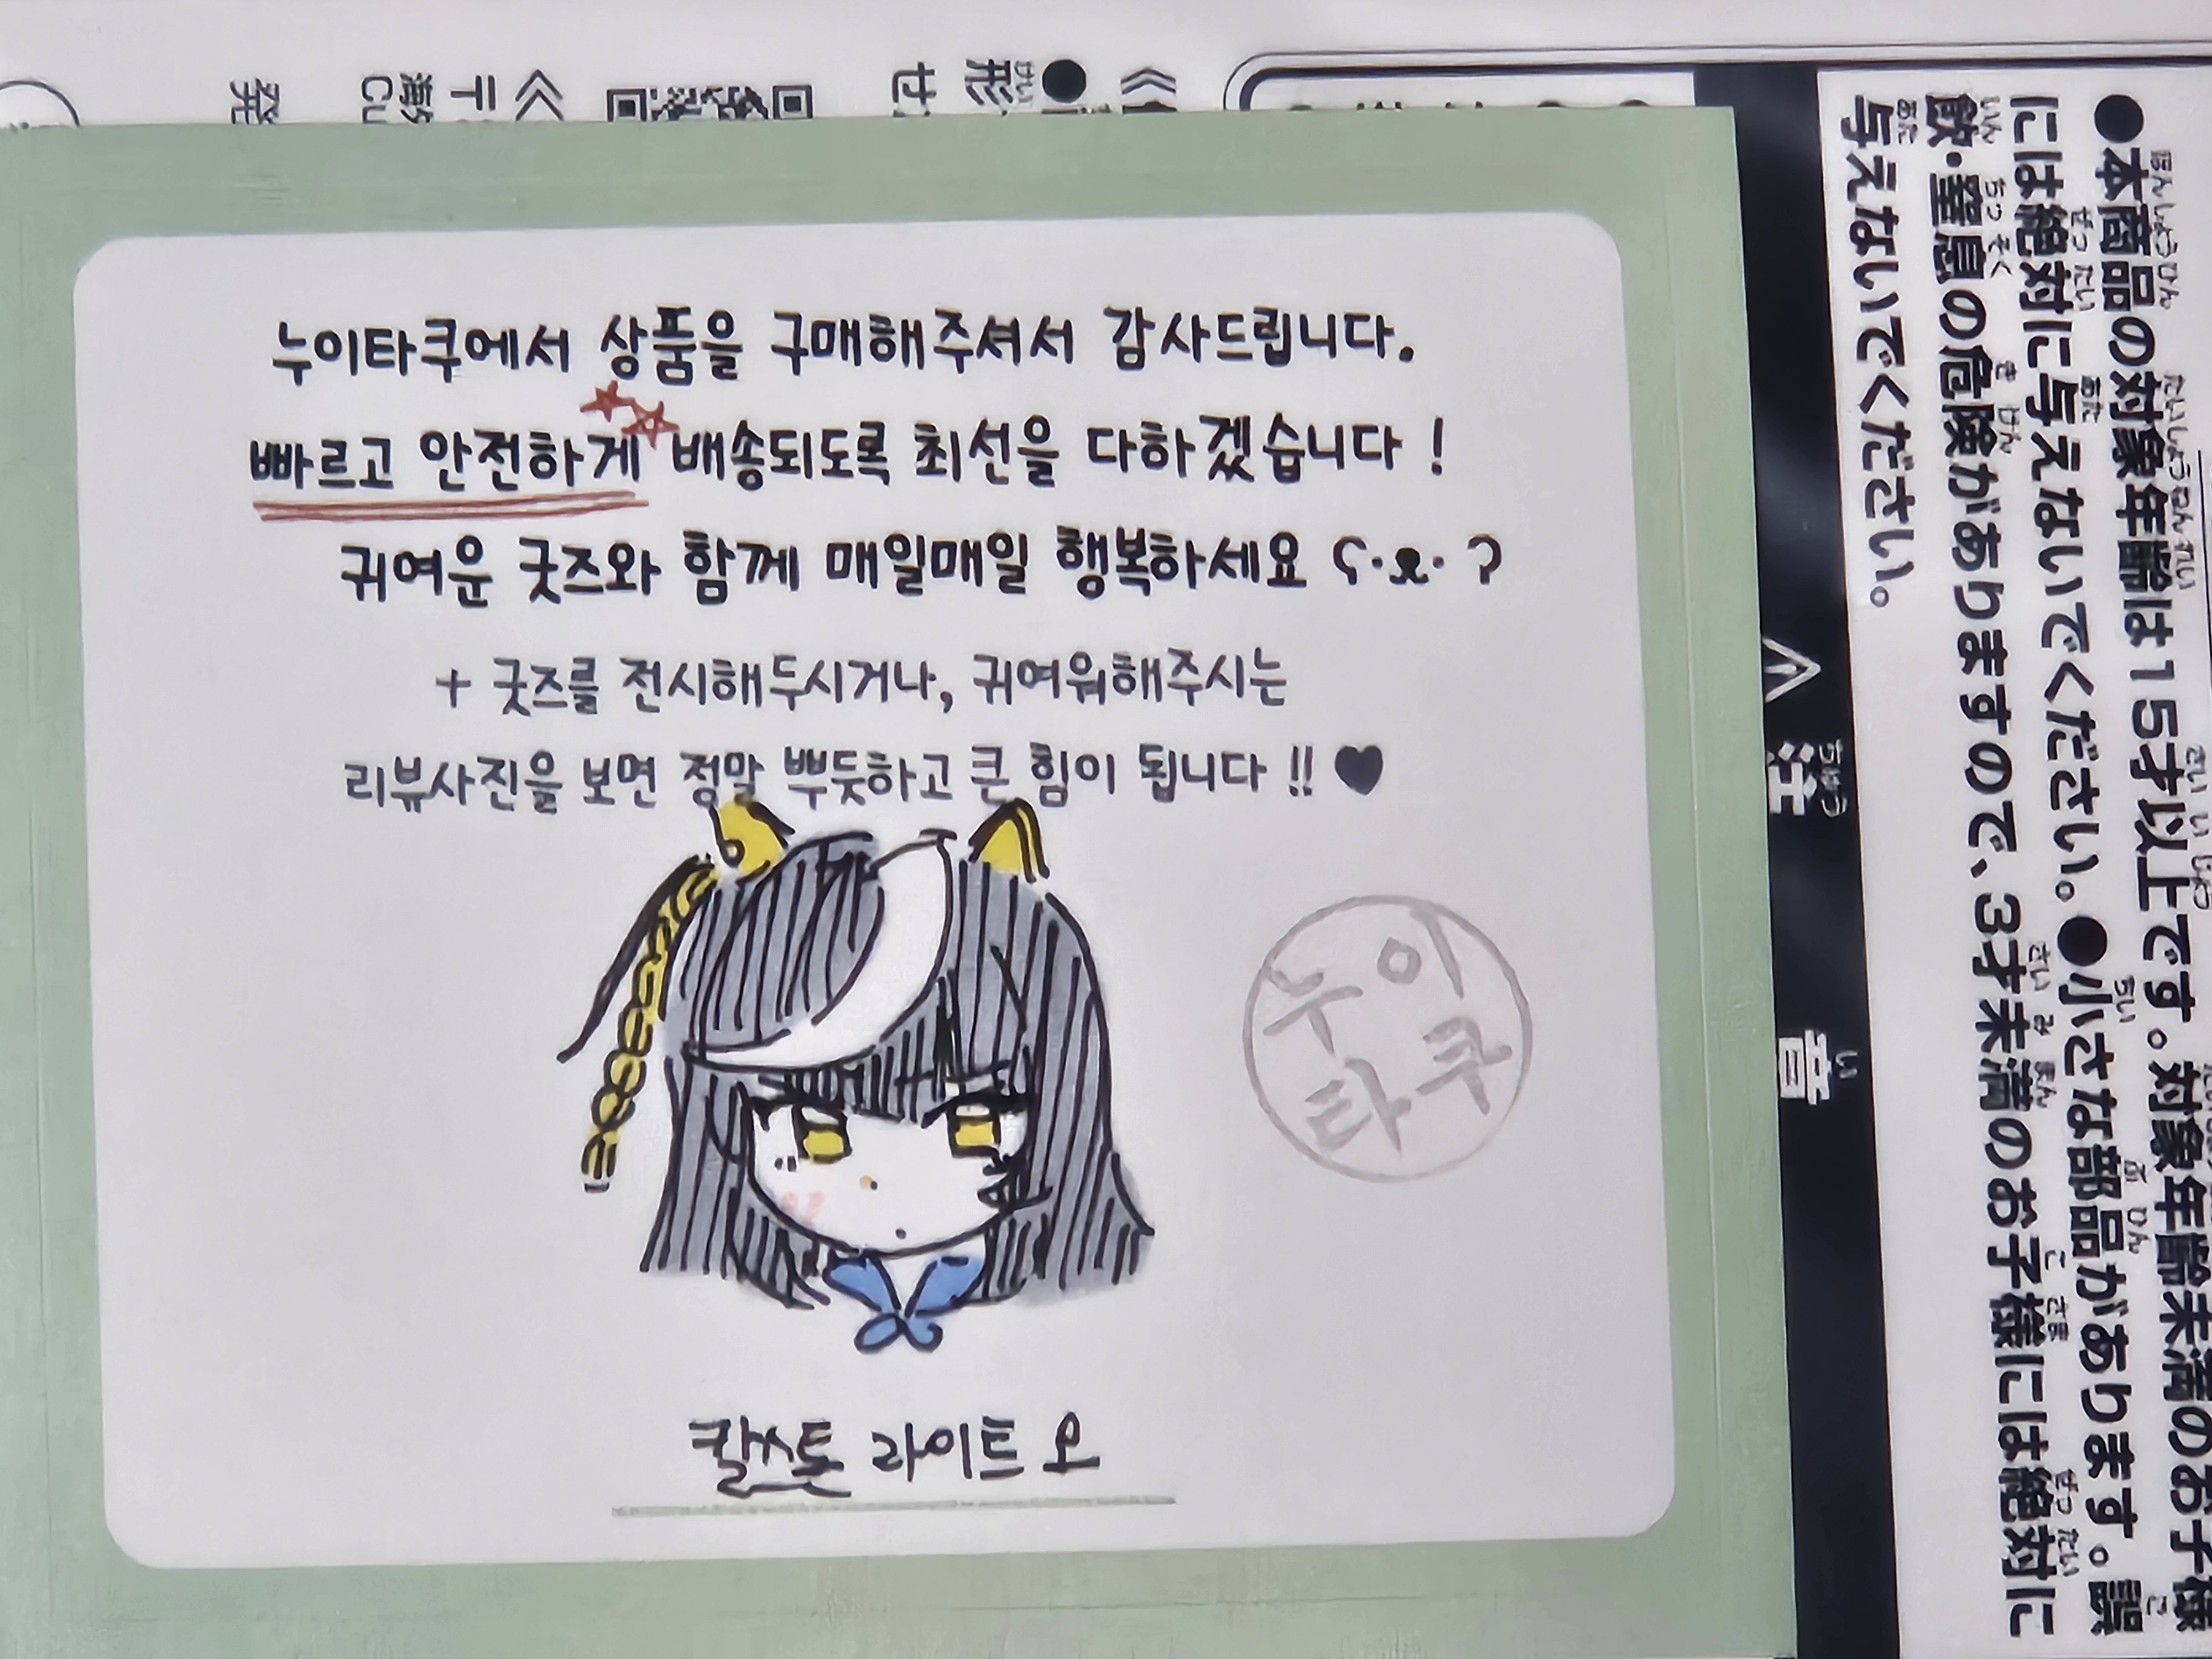 누이타쿠에서 상품을 구매해주셔서 감사드립니다.
빠르고 안전하게 배송되도록 최선을 다하겠습니다 !
귀여운 굿즈와 함께 매일매일 행복하세요 ʕ·ᴥ·ʔ
+ 굿즈를 전시해두시거나, 귀여워해주시는
리뷰사진을 보면 정말 뿌듯하고 큰 힘이 됩니다 !! ♥
누이
타쿠
칼스톤 라이트 오
注意
●本商品の対象年齢は15才以上です。対象年齢未満のお子様
には絶対に与えないでください。●小さな部品があります。誤
飲・窒息の危険がありますので、3才未満のお子様には絶対に
与えないでください。